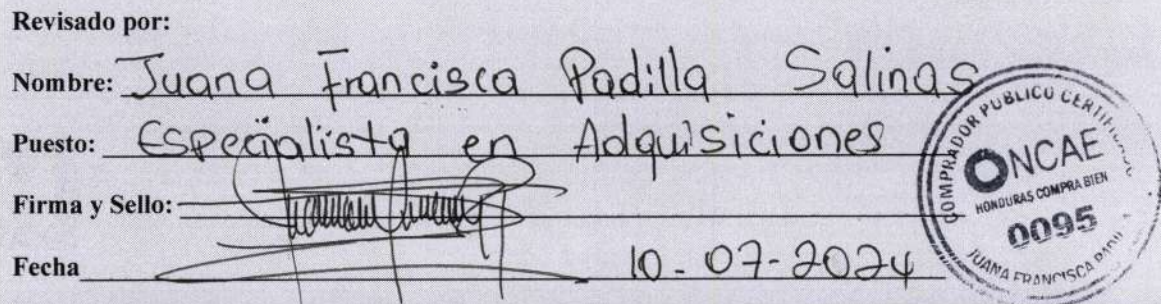 Revisado por:
Nombre: Juana Francisca Padilla Salinas
Puesto: Especialista en Adquisiciones
Firma y Sello:
Fecha 10-07-2024
COMPRADOR PUBLICO
ONCAE
HONDURAS COMPRA BIEN
0095
JUANA FRANCISCA